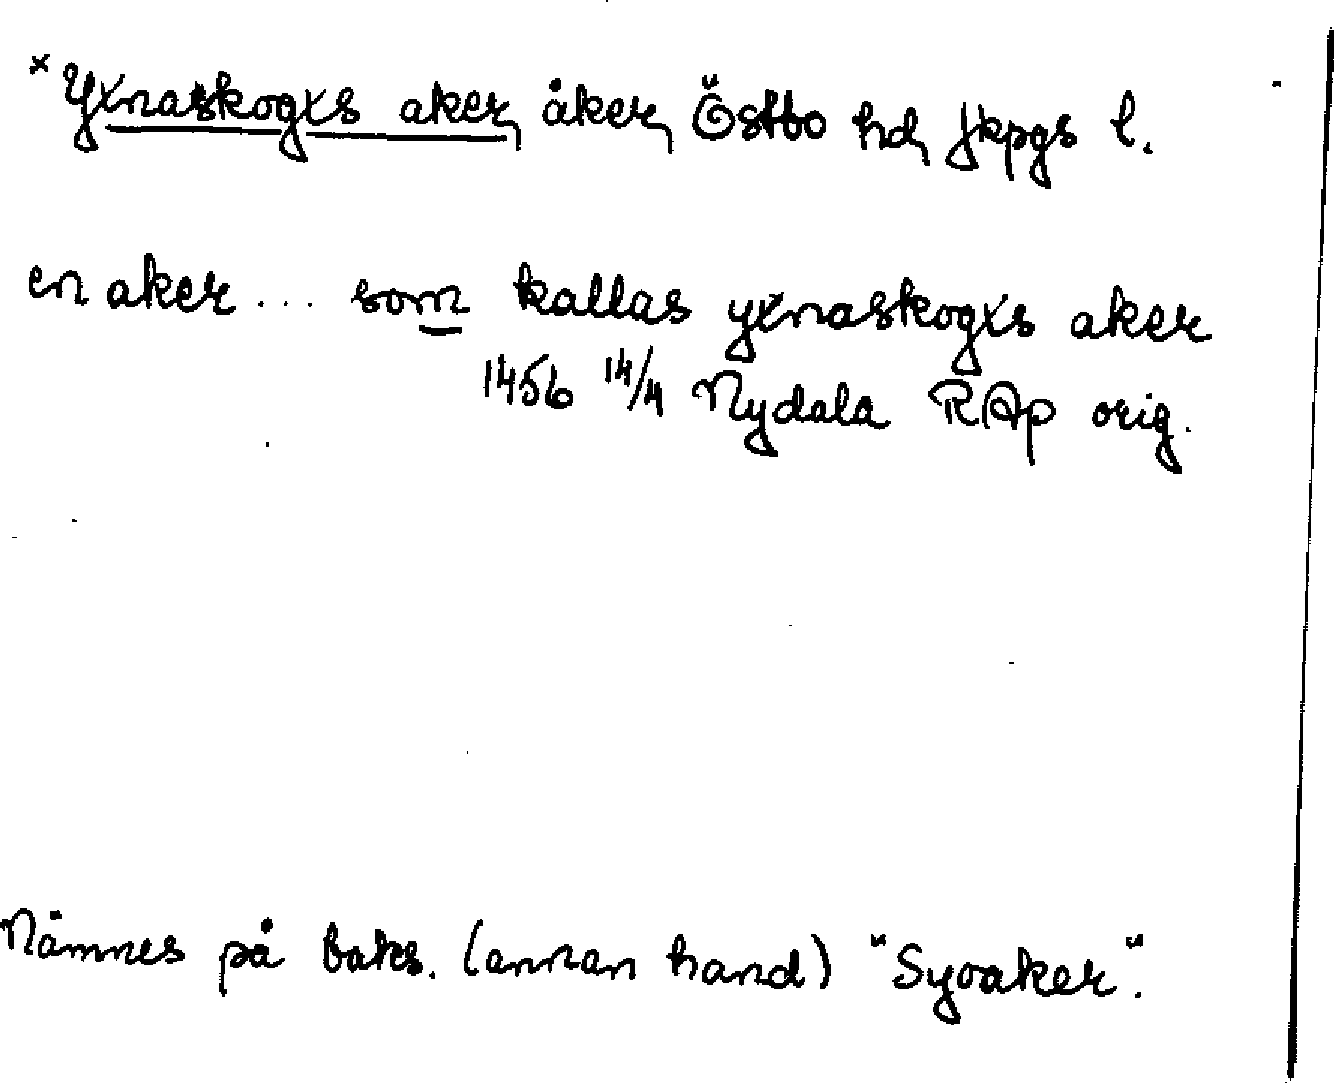 *Yxnaskogxs aker, åker, Östbo hd, Jkpgs l.
en aker ... som kallas yxnaskogxs aker
1456 14/4 Nydala RAp orig.
Nämnes på baks. (annan hand) "Syoaker".